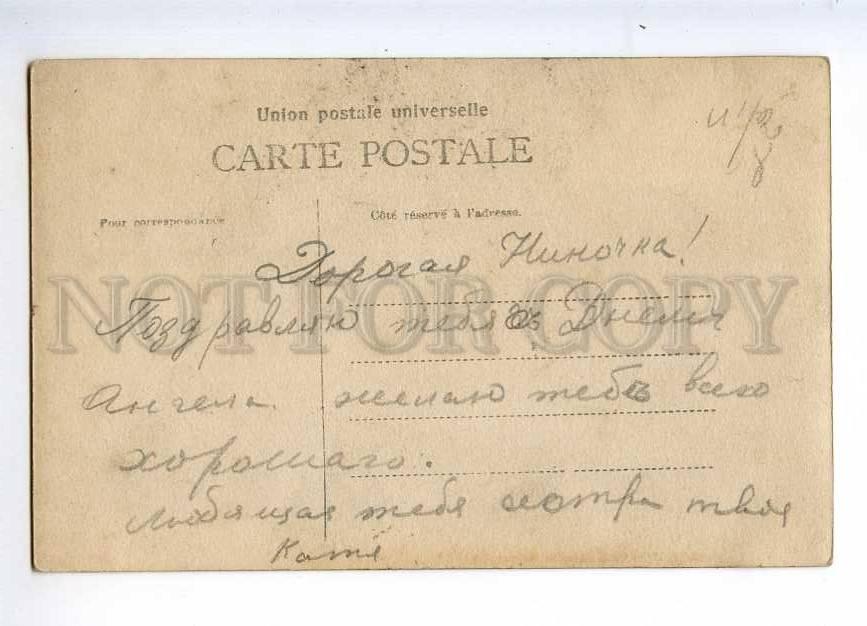 Union postale universelle
CARTE POSTALE
Pour correspondance
Côté réservé à l'adresse.
Дорогая Ниночка!
Поздравляю тебя съ Днемъ
Ангела желаю тебѣ всего
хорошаго.
Любящая тебя сестра твоя
Катя
NOT FOR COPY